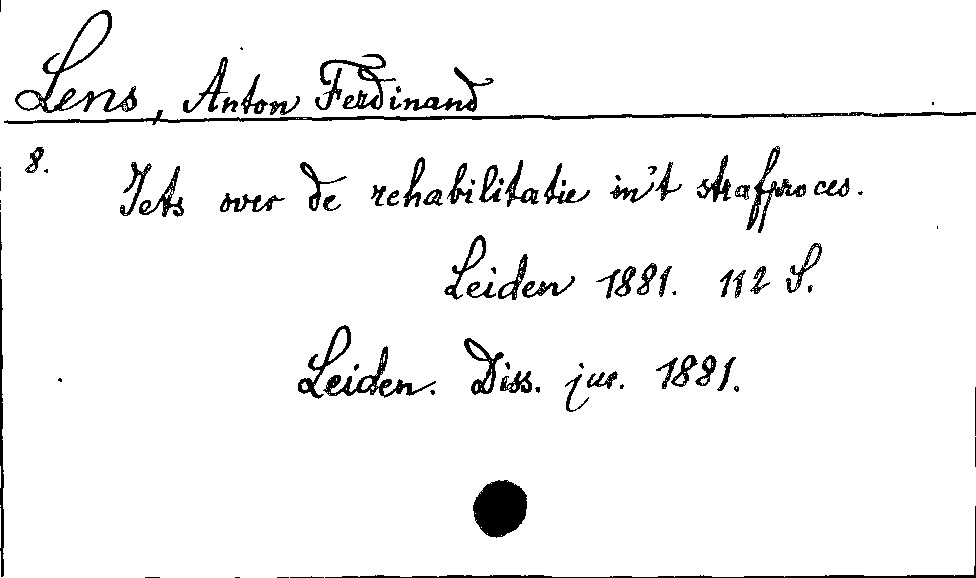 Lens, Anton Ferdinand
8.
Iets over de rehabilitatie in't strafproces.
Leiden 1881. 112 S.
Leiden. Diss. jur. 1881.